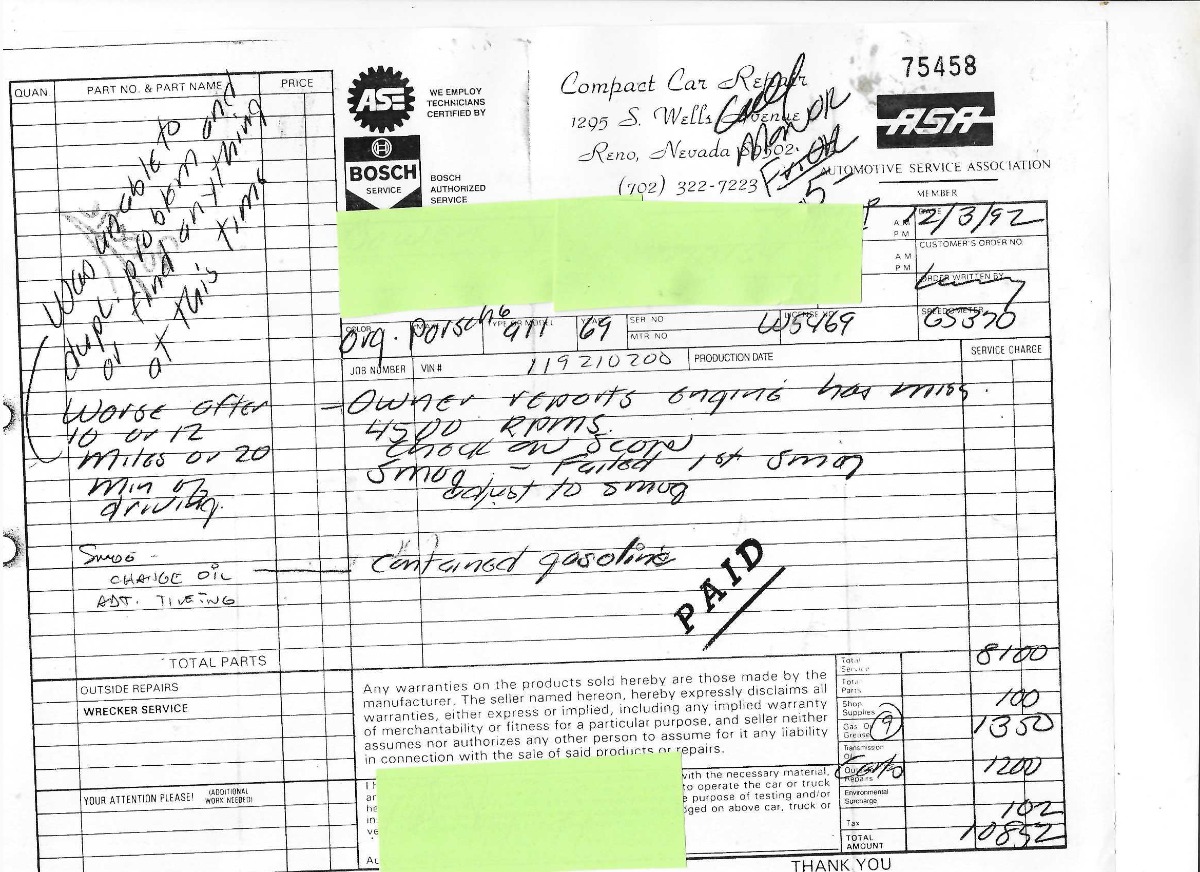 75458
QUAN
PART NO. & PART NAME
PRICE
ASE
WE EMPLOY
TECHNICIANS
CERTIFIED BY
BOSCH
SERVICE
BOSCH
AUTHORIZED
SERVICE
Compact Car Repair
1295 S. Wells Avenue
Reno, Nevada 89502
(702) 322-7223
Call
Man OR
ASA
AUTOMOTIVE SERVICE ASSOCIATION
MEMBER
Was unable to
dupl. problem and
or find anything
at this time
DATE
12/3/92
A M
P M
CUSTOMER'S ORDER NO.
A M
P M
ORDER WRITTEN BY
COLOR
org.
MAKE
Porsche
TYPE OR MODEL
911
YEAR
69
SER NO
MTR NO
LICENSE NO
W5469
SPEEDOMETER
65370
JOB NUMBER
VIN #
119210200
PRODUCTION DATE
SERVICE CHARGE
Worse after
10 or 12
miles or 20
min of
driving.
- Owner reports engine has miss.
4500 RPMS.
Check on Scope
Smog - Failed 1st smog
adjust to smog
SMOG -
CHANGE OIL — contained gasoline
ADJ. TIMING
PAID
TOTAL PARTS
OUTSIDE REPAIRS
WRECKER SERVICE
YOUR ATTENTION PLEASE! (ADDITIONAL
WORK NEEDED)
Any warranties on the products sold hereby are those made by the
manufacturer. The seller named hereon, hereby expressly disclaims all
warranties, either express or implied, including any implied warranty
of merchantability or fitness for a particular purpose, and seller neither
assumes nor authorizes any other person to assume for it any liability
in connection with the sale of said products or repairs.
with the necessary material,
to operate the car or truck
purpose of testing and/or
on above car, truck or
Total
Service
8100
Total
Parts
Shop
Supplies
100
Gas Oil
Grease
9
1350
Transmission
Oil
Outside
Repairs
1200
Environmental
Surcharge
Tax
102
TOTAL
AMOUNT
10852
THANK YOU